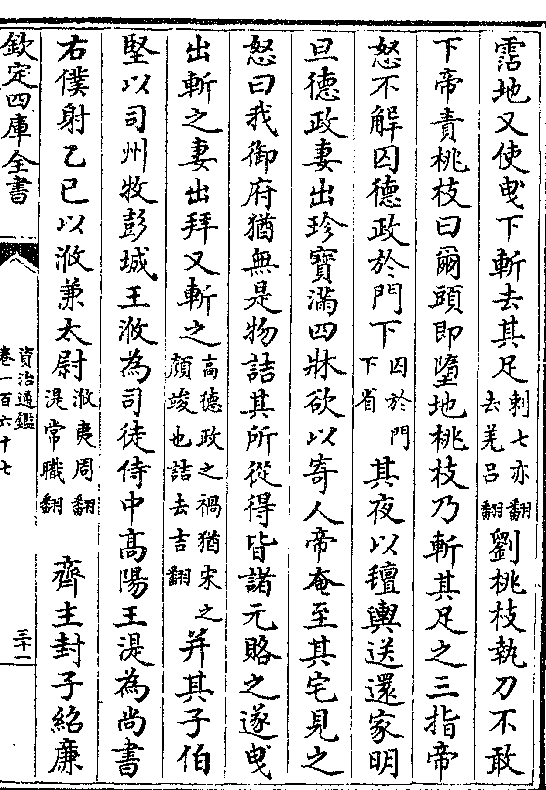 霑地又使曵下斬去其足刺七亦翻去羌呂翻劉桃枝執刀不敢
下帝責桃枝曰爾頭即墮地桃枝乃斬其足之三指帝
怒不解囚德政於門下囚於門下省其夜以氊輿送還家明
旦德政妻出珍寶滿四牀欲以寄人帝奄至其宅見之
怒曰我御府猶無是物詰其所從得皆諸元賂之遂曵
出斬之妻出拜又斬之高德政之禍猶宋之顔竣也詰去吉翻并其子伯
堅以司州牧彭城王浟為司徒侍中高陽王湜為尚書
右僕射乙巳以浟兼太尉浟夷周翻湜常職翻齊主封子紹廉
欽定四庫全書
資治通鑑
卷一百六十七
三十一